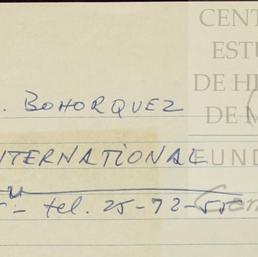 CENT
ESTU
DE HI
DE M
FUND
. BOHORQUEZ
NTERNATIONAL
- tel. 25-72-55